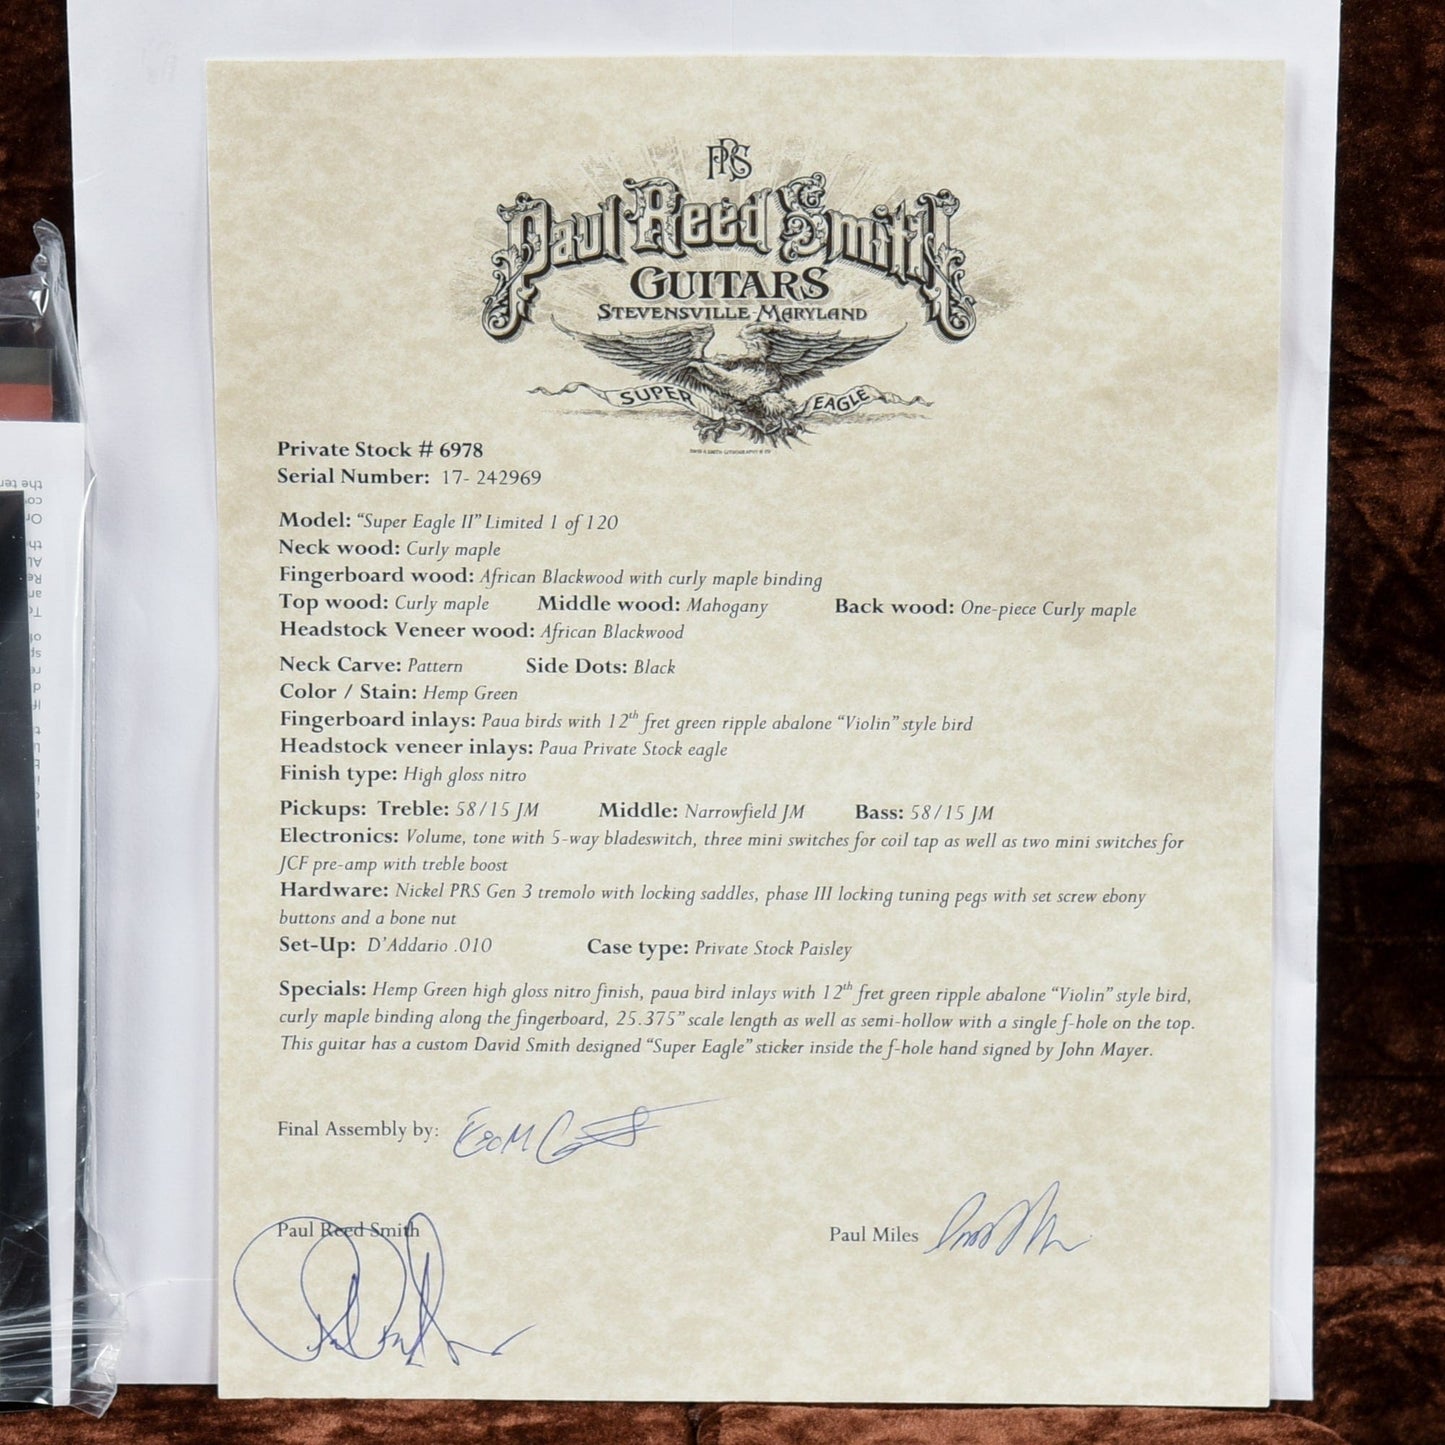 PRS
Paul Reed Smith
GUITARS
STEVENSVILLE-MARYLAND
SUPER EAGLE
Private Stock # 6978
Serial Number: 17- 242969
Model: “Super Eagle II” Limited 1 of 120
Neck wood: Curly maple
Fingerboard wood: African Blackwood with curly maple binding
Top wood: Curly maple Middle wood: Mahogany Back wood: One-piece Curly maple
Headstock Veneer wood: African Blackwood
Neck Carve: Pattern Side Dots: Black
Color / Stain: Hemp Green
Fingerboard inlays: Paua birds with 12th fret green ripple abalone “Violin” style bird
Headstock veneer inlays: Paua Private Stock eagle
Finish type: High gloss nitro
Pickups: Treble: 58/15 JM Middle: Narrowfield JM Bass: 58/15 JM
Electronics: Volume, tone with 5-way bladeswitch, three mini switches for coil tap as well as two mini switches for
JCF pre-amp with treble boost
Hardware: Nickel PRS Gen 3 tremolo with locking saddles, phase III locking tuning pegs with set screw ebony
buttons and a bone nut
Set-Up: D’Addario .010 Case type: Private Stock Paisley
Specials: Hemp Green high gloss nitro finish, paua bird inlays with 12th fret green ripple abalone “Violin” style bird,
curly maple binding along the fingerboard, 25.375” scale length as well as semi-hollow with a single f-hole on the top.
This guitar has a custom David Smith designed “Super Eagle” sticker inside the f-hole hand signed by John Mayer.
Final Assembly by:
Paul Reed Smith Paul Miles